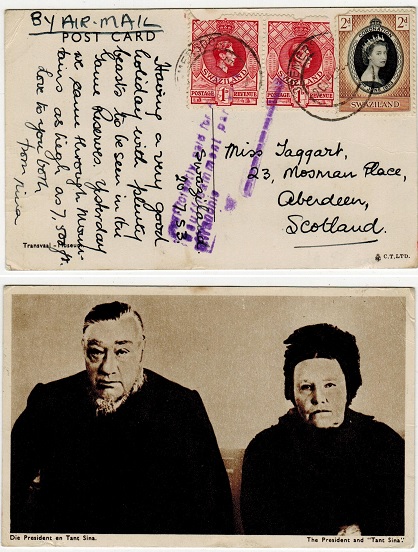 BY AIR-MAIL
POST CARD
SWAZILAND
POSTAGE 1D REVENUE
SWAZILAND
POSTAGE 1D REVENUE
2d CORONATION 2d
SWAZILAND
Having a very good
holiday with plenty
beasts to be seen in the
Game Reserves. Yesterday
we came through Moun-
tains as high as 7,500 ft.
Love to you both
from Nina
Swaziland
26.7.53.
Miss Taggart,
23, Mosman Place,
Aberdeen,
Scotland.
Transvaal Museum
C.T. LTD.
Die President en Tant Sina.
The President and "Tant Sina".